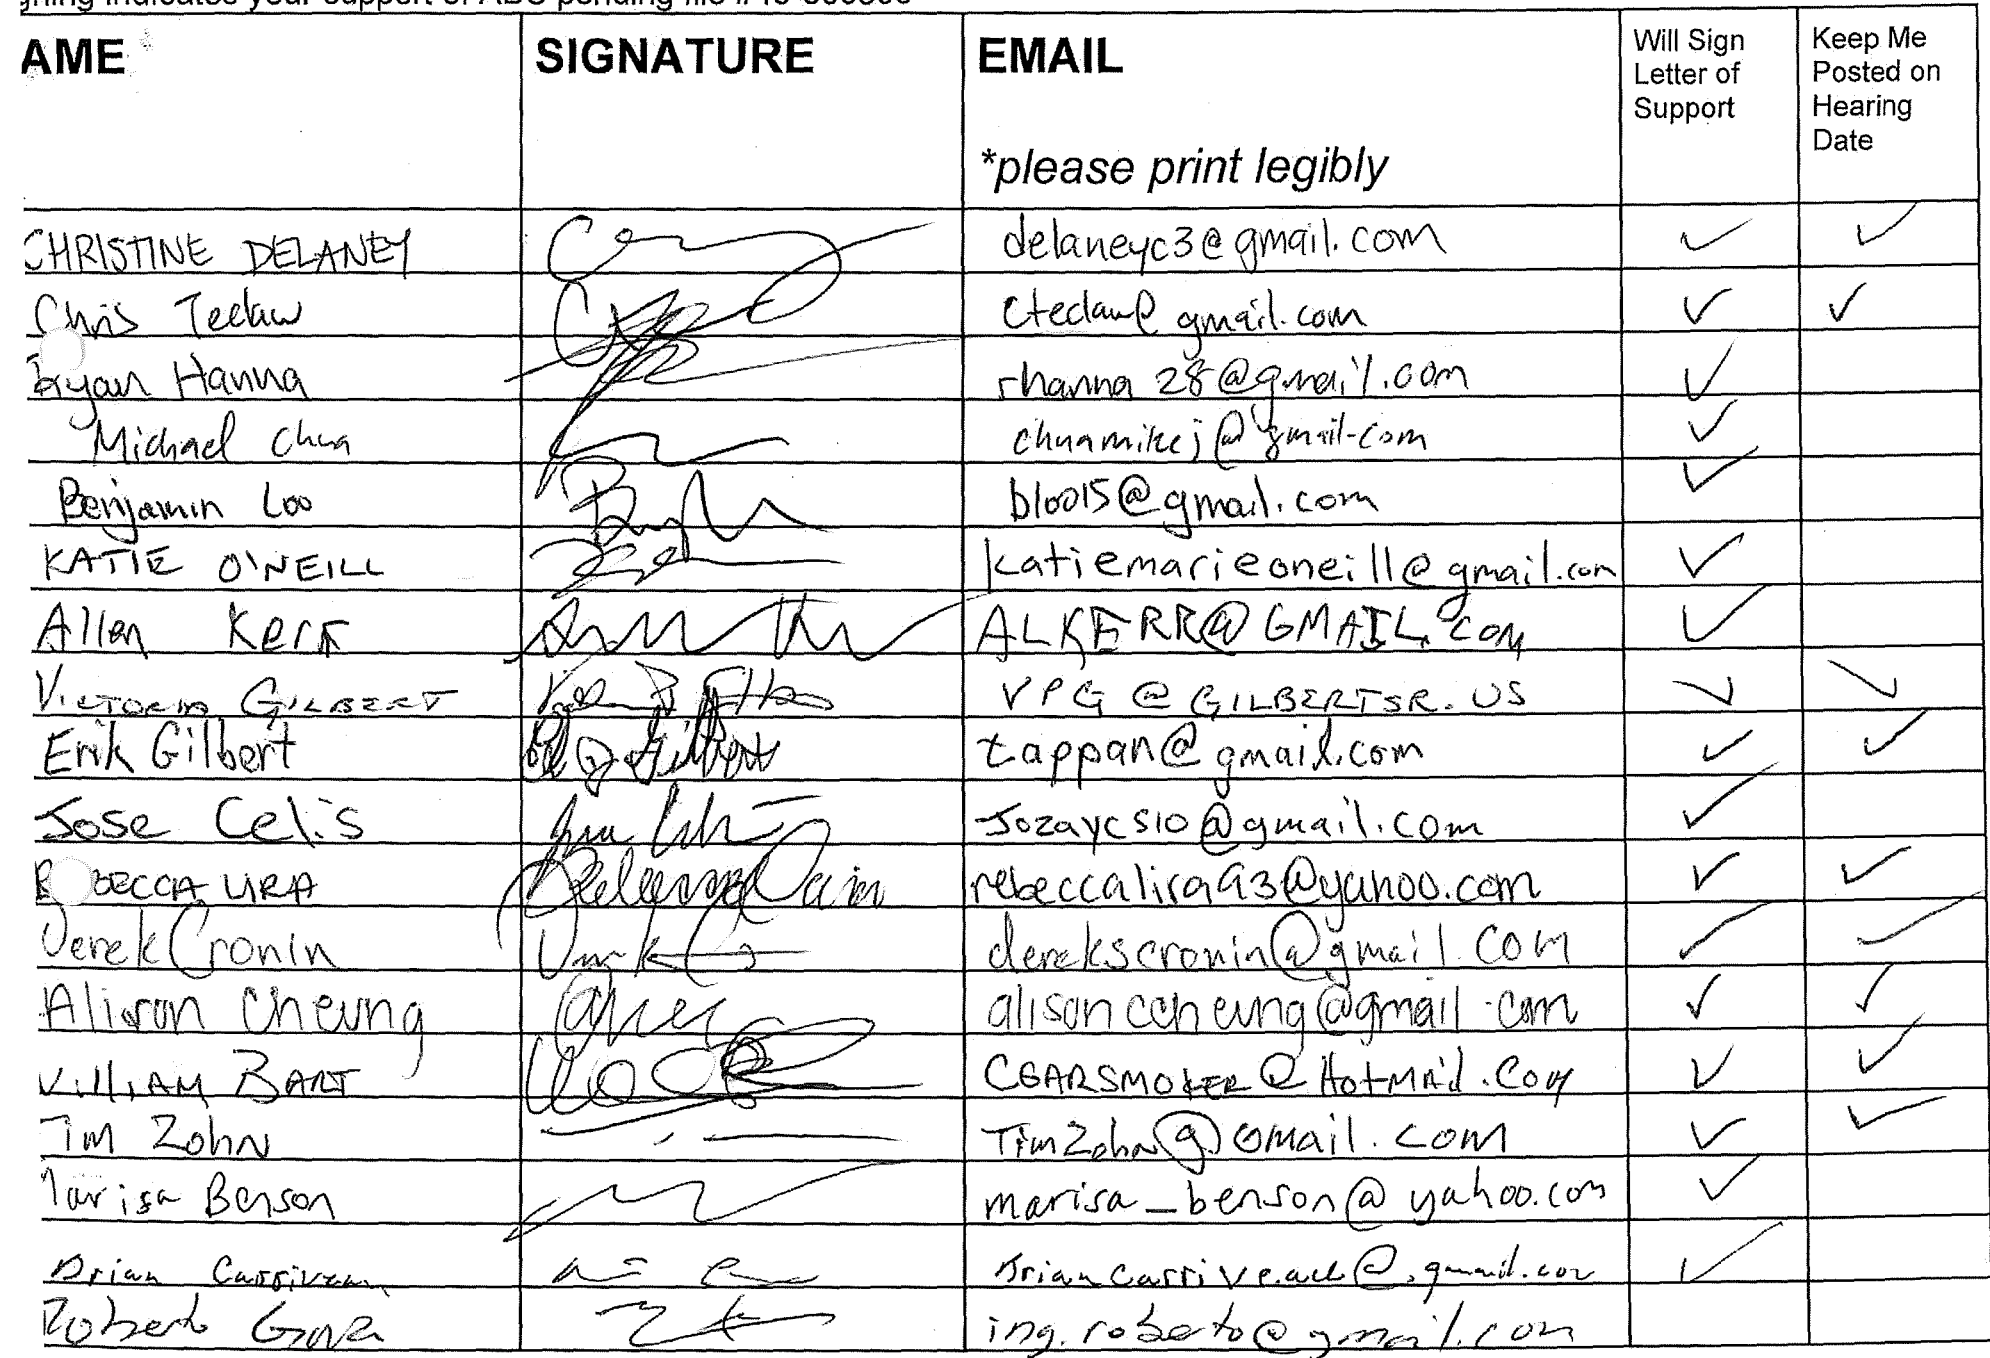 AME SIGNATURE EMAIL Will Sign Letter of Support Keep Me Posted on Hearing Date
*please print legibly
CHRISTINE DELANEY delaneyc3@gmail.com ✓ ✓
Chris Teclaw cteclaw@gmail.com ✓ ✓
Ryan Hanna rhanna28@gmail.com ✓
Michael Chua chuamikej@gmail.com ✓
Benjamin Loo bloo15@gmail.com ✓
KATIE O'NEILL katiemarieoneill@gmail.com ✓
Allen Kerr ALKERR@GMAIL.COM ✓
VICTORIA GILBERT VPG@GILBERTSR.US ✓ ✓
Erik Gilbert tappan@gmail.com ✓ ✓
Jose Celis Jozaycs10@gmail.com ✓
REBECCA LIRA rebeccalira93@yahoo.com ✓ ✓
Derek Cronin derekscronin@gmail.com ✓ ✓
Alison Cheung alisonccheung@gmail.com ✓ ✓
WILLIAM BART CGARSMOKER@HOTMAil.Com ✓ ✓
Tim Zohn TimZohn@Gmail.com ✓ ✓
Marisa Benson marisa_benson@yahoo.com ✓
Brian Carriveau Briancarriveau@gmail.com ✓
Roberto ing.roberto@gmail.com